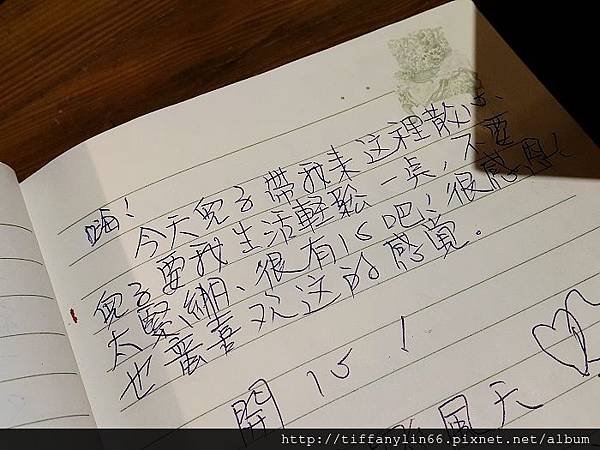 嗨!
今天兒子帶我来这裡散心、
兒子要我生活輕鬆一点,不要
太緊繃、很有心吧!很感恩!
也蛮喜欢这的感覚.
開心!
風天
http://tiffanylin66.pixnet.net/album